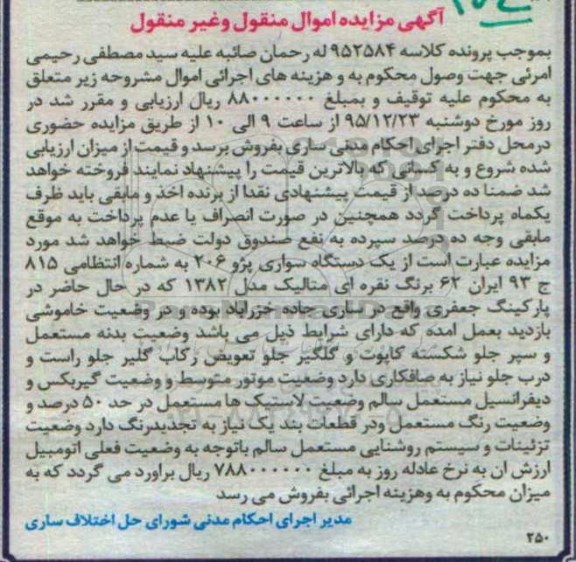 آگهی مزایده اموال منقول وغیر منقول
بموجب پرونده کلاسه ۹۵۲۵۸۴ له رحمان صائبه علیه سید مصطفی رحیمی
امرئی جهت وصول محکوم به و هزینه های اجرائی اموال مشروحه زیر متعلق
به محکوم علیه توقیف و بمبلغ ۸۸۰۰۰۰۰۰ ریال ارزیابی و مقرر شد در
روز مورخ دوشنبه ۹۵/۱۲/۲۳ از ساعت ۹ الی ۱۰ از طریق مزایده حضوری
درمحل دفتر اجرای احکام مدنی ساری بفروش برسد و قیمت از میزان ارزیابی
شده شروع و به کسانی که بالاترین قیمت را پیشنهاد نمایند فروخته خواهد
شد ضمنا ده درصد از قیمت پیشنهادی نقدا از برنده اخذ و مابقی باید ظرف
یکماه پرداخت گردد همچنین در صورت انصراف یا عدم پرداخت به موقع
مابقی وجه ده درصد سپرده به نفع صندوق دولت ضبط خواهد شد مورد
مزایده عبارت است از یک دستگاه سواری پژو ۲۰۶ به شماره انتظامی ۸۱۵
ج ۹۳ ایران ۶۲ برنگ نقره ای متالیک مدل ۱۳۸۲ که در حال حاضر در
پارکینگ جعفری واقع در ساری جاده خزرآباد بوده و در وضعیت خاموشی
بازدید بعمل امده که دارای شرایط ذیل می باشد وضعیت بدنه مستعمل
و سپر جلو شکسته کاپوت و گلگیر جلو تعویض رکاب گلیر جلو راست و
درب جلو نیاز به صافکاری دارد وضعیت موتور متوسط و وضعیت گیربکس و
دیفرانسیل مستعمل سالم وضعیت لاستیک ها مستعمل در حد ۵۰ درصد و
وضعیت رنگ مستعمل ودر قطعات بند یک نیاز به تجدیدرنگ دارد وضعیت
تزئینات و سیستم روشنایی مستعمل سالم باتوجه به وضعیت فعلی اتومبیل
ارزش ان به نرخ عادله روز به مبلغ ۷۸۸۰۰۰۰۰۰ ریال براورد می گردد که به
میزان محکوم به وهزینه اجرائی بفروش می رسد
مدیر اجرای احکام مدنی شورای حل اختلاف ساری
۲۵۰